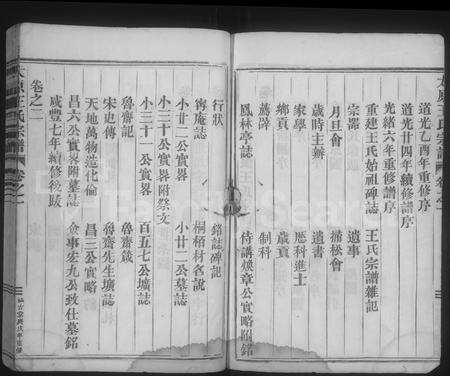 太原王氏宗譜 卷之一
道光乙酉年重修序
道光廿四年續修譜序
光緒六年重修譜序
重建王氏始祖碑誌 王氏宗譜雜記
宗器 遺事
月旦會 掃松會
歲時主辦 遺書
家學 歷科進士
鄉貢 歲貢
薦辟 制科
鳳林亭誌 待講煥章公實略附銘
行狀 銘誌碑記
筠庵誌 桐栢材名說
小廿二公實畧 小廿二公墓誌
小三十公實畧附祭文
小三十一公實畧 百五七公壙誌
魯齋記 魯齋箴
宋史傳 魯齋先生壙誌
天地萬物造化倫 昌三公實略
昌六公實畧附墓誌
咸豐七年續修後跋 僉事宏九公致仕墓銘
卷之二
太原王氏宗譜 卷之一